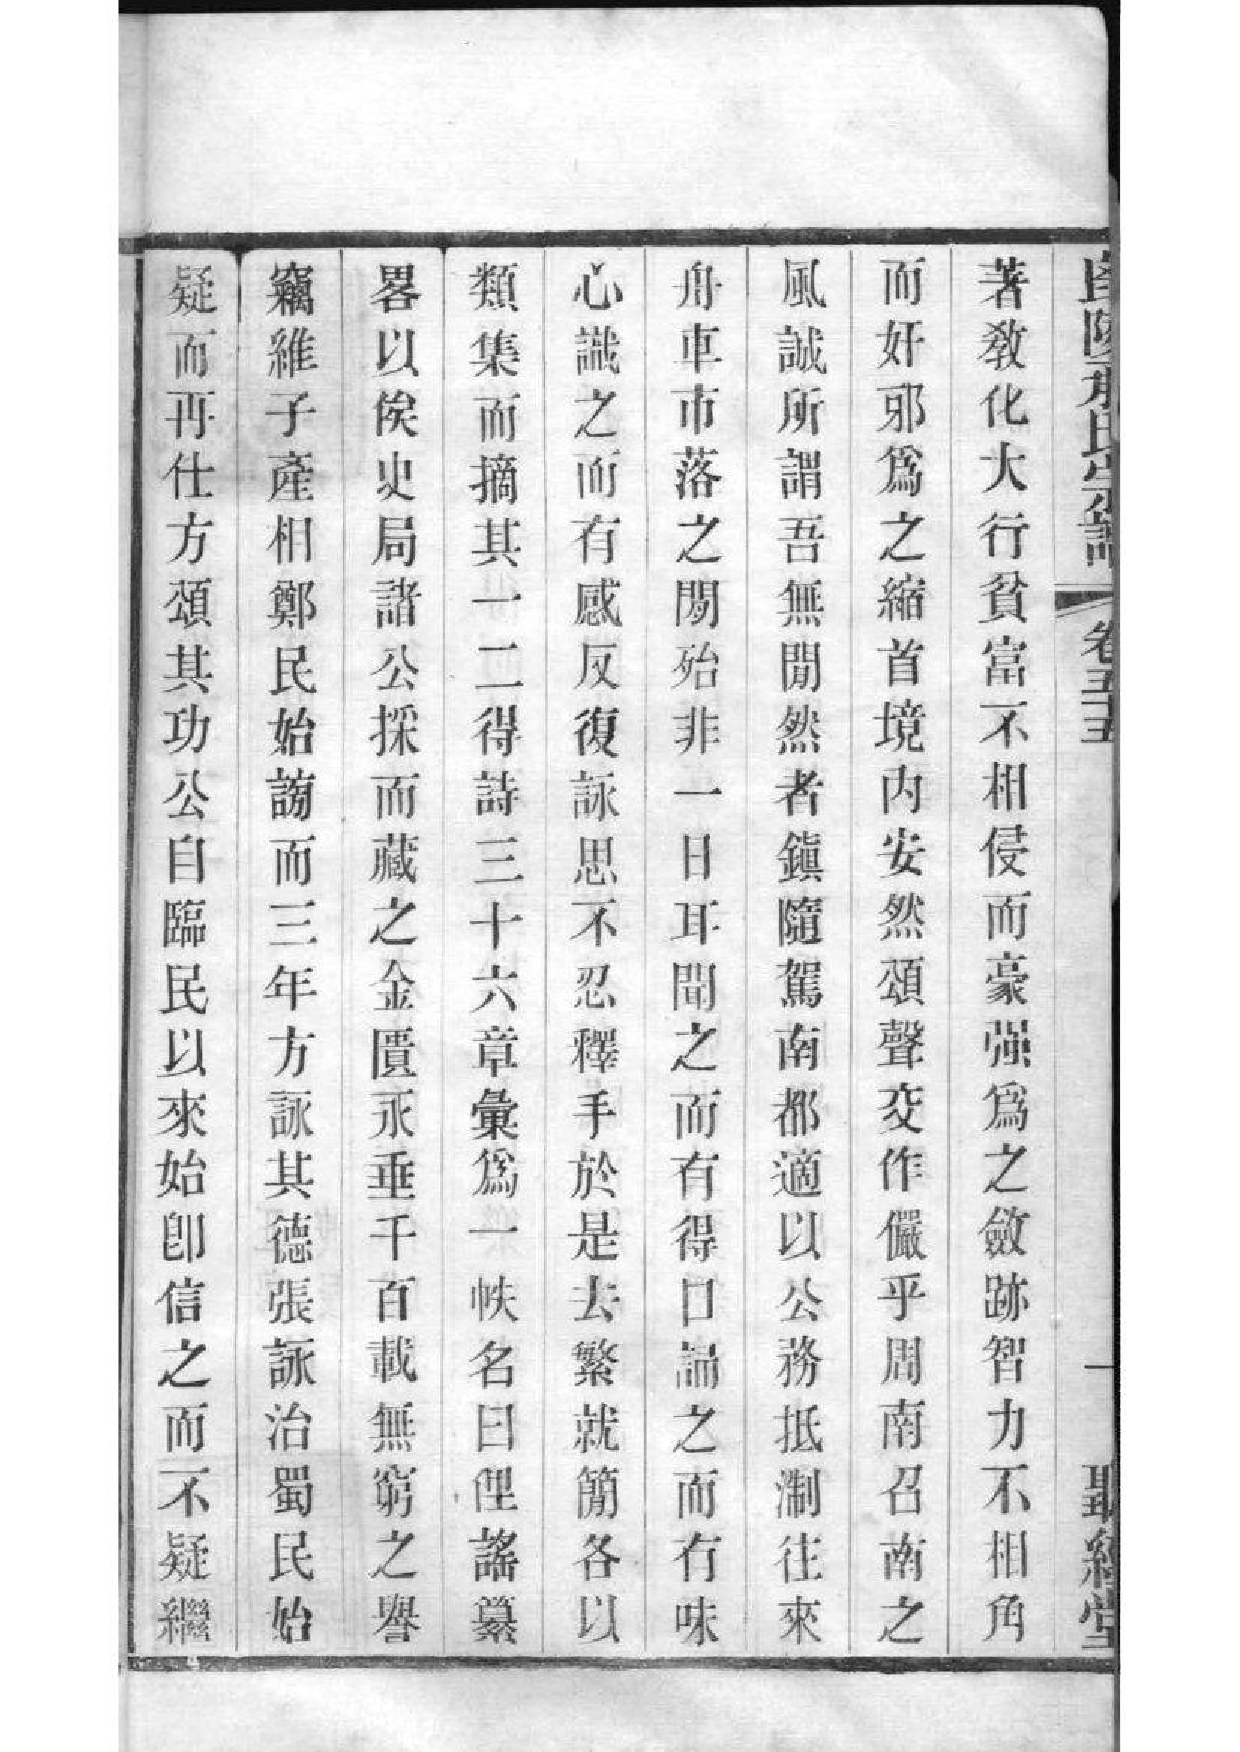 著教化大行貧富不相侵而豪强爲之斂跡智力不相角
而奸邪爲之縮首境内安然頌聲交作儼乎周南召南之
風誠所謂吾無閒然者鎮隨駕南都適以公務抵淛往來
舟車市落之閒殆非一日耳聞之而有得口誦之而有味
心識之而有感反復詠思不忍釋手於是去繁就簡各以
類集而摘其一二得詩三十六章彙爲一帙名曰俚謠纂
畧以俟史局諸公採而藏之金匱永垂千百載無窮之譽
竊維子產相鄭民始謗而三年方詠其德張詠治蜀民始
疑而再仕方頌其功公自臨民以來始卽信之而不疑繼
卷五十五
一
聽經堂